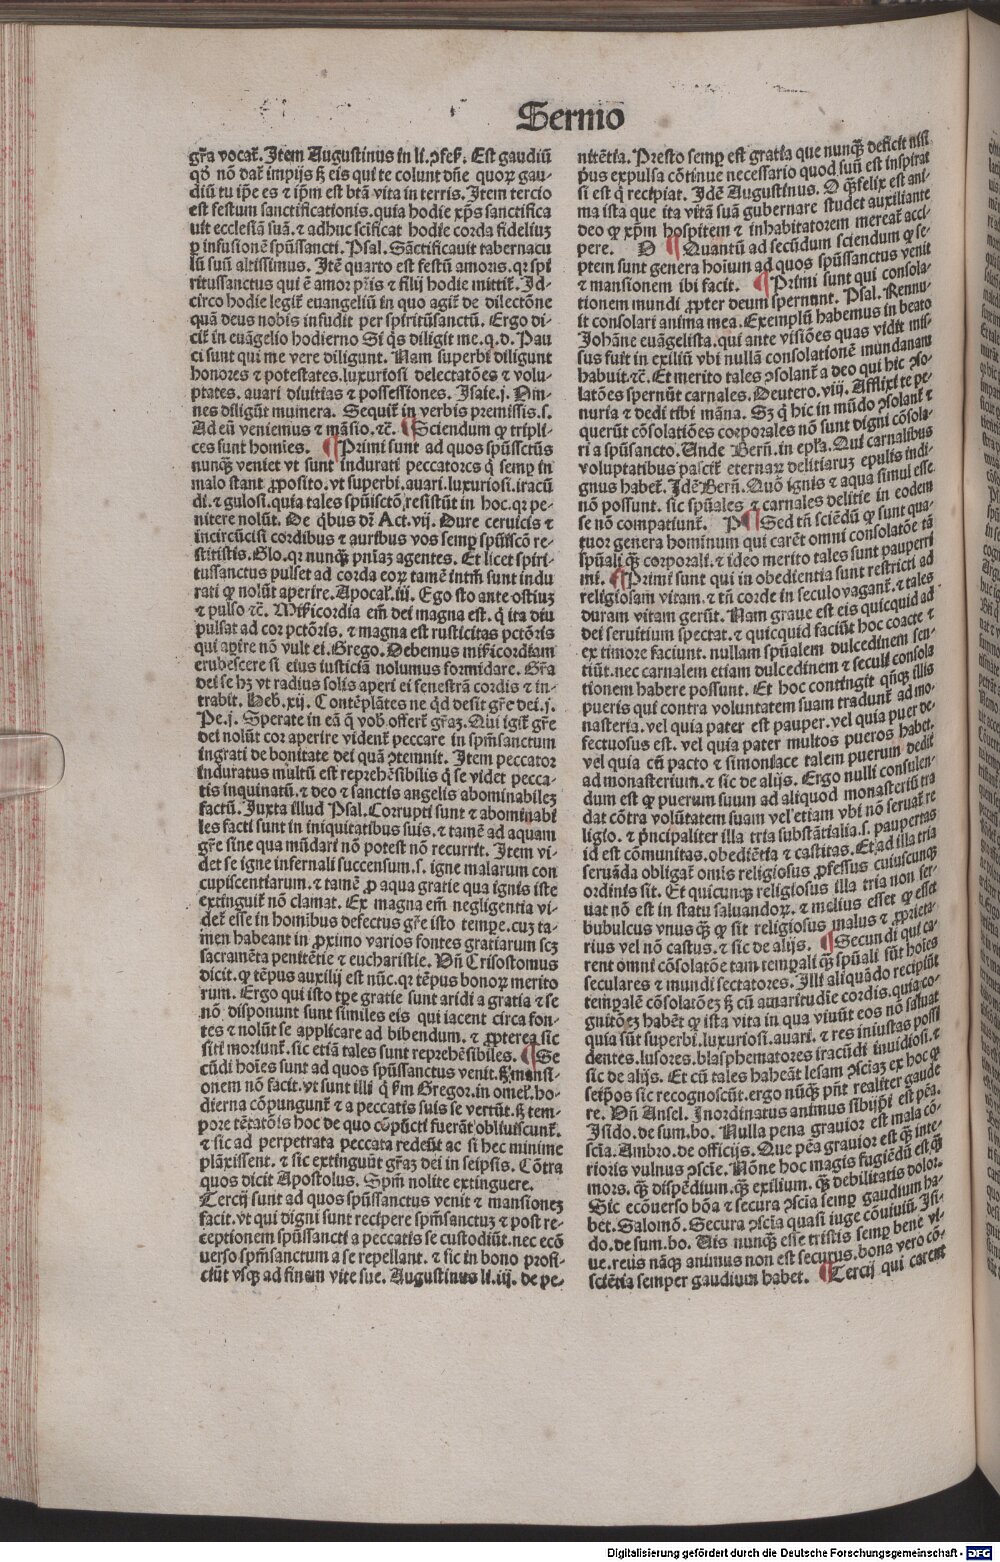 Sermo
gr̄a vocat̄. Item Augustinus in li. ꝯfeſ. Est gaudiū
qḋ nō dat̄ impijs sꝫ eis qui te colunt dn̄e quoꝝ gau-
diū tu ip̄e es ⁊ ip̄m est btā vita in terris. Item tercio
est festum sanctificationis. quia hodie xp̄s sanctifica
uit ecclesiā suā. ⁊ adhuc scīficat hodie corda fideliuꝫ
ꝑ infusionē spūssancti. Psal. Sāctificauit tabernacu
lū suū altissimus. Itē quarto est festū amoris. qꝛ spi
ritussanctus qui ē amor pr̄is ⁊ filij hodie mittit̄. Id-
circo hodie legit̄ euangeliū in quo agit̄ de dilectōne
quā deus nobis infudit per spiritūsanctū. Ergo di-
cit̄ in euāgelio hodierno Si q̇s diligit me. q.d. Pau
ci sunt qui me vere diligunt. Nam superbi diligunt
honores ⁊ potestates. luxuriosi delectatōes ⁊ volu-
ptates. auari diuitias ⁊ possessiones. Isaie.j. Om-
nes diligūt munera. Sequit̄ in verbis premissis. s.
Ad eū veniemus ⁊ māsio. ⁊c̄. ¶ Sciendum ꝙ tripli-
ces sunt homīes. ¶ Primi sunt ad quos spūssctūs
nunqꝫ veniet vt sunt indurati peccatores q̇ semꝑ in
malo stant ꝓposito. vt superbi. auari. luxuriosi. iracū
di. ⁊ gulosi. quia tales spūisctō resistūt in hoc. qꝛ pe-
nitere nolūt. De q̇bus dr̄ Act. vij. Dure ceruicis ⁊
incircūcisi cordibus ⁊ auribus vos semꝑ spūiscō re-
stitistis. Glo. qꝛ nunqꝫ pniaꝫ agentes. Et licet spiri-
tussanctus pulset ad corda eoꝝ tamē intm̄ sunt indu
rati ꝙ nolūt aperire. Apocal̄. iij. Ego sto ante ostiuꝫ
⁊ pulso ⁊c̄. Mīcordia em̄ dei magna est. q̇ ita diu
pulsat ad cor pctōris. ⁊ magna est rusticitas pctōris
qui aꝑire nō vult ei. Grego. Debemus mīcordiam
erubescere si eius iusticiā nolumus formidare. Gr̄a
dei se hꝫ vt radius solis aperi ei fenestrā cordis ⁊ in-
trabit. Heb. xij. Contēplātes ne q̇d desit gr̄e dei. j.
Pe. j. Sperate in eā q̄ vob̄ offert̄ gr̄aꝫ. Qui igit̄ gr̄e
dei nolūt cor aperire vident̄ peccare in spm̄sanctum
ingrati de bonitate dei quā ꝯtemnit. Item peccator
induratus multū est reprehēsibilis q̇ se videt pecca-
tis inquinatū. ⁊ deo ⁊ sanctis angelis abominabileꝫ
factū. Iuxta illud Psal. Corrupti sunt ⁊ abominabi
les facti sunt in iniquitatibus suis. ⁊ tamē ad aquam
gr̄e sine qua mūdari nō potest nō recurrit. Item vi-
det se igne infernali succensum. s. igne malarum con
cupiscentiarum. ⁊ tamē ꝓ aqua gratie qua ignis iste
extinguit̄ nō clamat. Ex magna em̄ negligentia vi-
det̄ esse in homibus defectus gr̄e isto tempe. cuꝫ ta-
men habeant in ꝓximo varios fontes gratiarum scꝫ
sacramēta penitētie ⁊ eucharistie. Vn̄ Crisostomus
dicit. ꝙ tēpus auxilij est nūc. qꝛ tēpus bonoꝝ merito
rum. Ergo qui isto tꝑe gratie sunt aridi a gratia ⁊ se
nō disponunt sunt similes eis qui iacent circa fon-
tes ⁊ nolūt se applicare ad bibendum. ⁊ ꝓpterea sic
siti moriunt̄. sic etiā tales sunt reprehēsibiles. ¶ Se
cūdi hoīes sunt ad quos spūssanctus venit. sꝫ mansi-
onem nō facit. vt sunt illi q̇ ẜm Gregor. in omel̄. ho-
dierna cōpungunt̄ ⁊ a peccatis suis se vertūt. sꝫ tem-
pore tētatōis hoc de quo cōpūcti fuerāt obliuiscunt̄.
⁊ sic ad perpetrata peccata redeūt ac si hec minime
plāxissent. ⁊ sic extinguūt gr̄aꝫ dei in seipsis. Cōtra
quos dicit Apostolus. Spm̄ nolite extinguere.
Tercij sunt ad quos spūssanctus venit ⁊ mansioneꝫ
facit. vt qui digni sunt recipere spm̄sanctuꝫ ⁊ post re-
ceptionem spūssancti a peccatis se custodiūt. nec ecō
uerso spm̄sanctum a se repellant. ⁊ sic in bono profi-
ciūt vsqꝫ ad finem vite sue. Augustinus li. iij. de pe-
nitētia. Presto semꝑ est gratia que nunqꝫ deficit nisi
prius expulsa cōtinue necessario quod suū est inspirat
si est q̇ recipiat. Idē Augustinus. O qꝫ felix est ani-
ma ista que ita vitā suā gubernare studet auxiliante
deo ꝙ xp̄m hospitem ⁊ inhabitatorem mereat̄ acci-
pere. O ¶ Quantū ad secūdum sciendum ꝙ se-
ptem sunt genera hoīum ad quos spūssanctus venit
⁊ mansionem ibi facit. ¶ Primi sunt qui consola-
tionem mundi ꝓpter deum spernunt. Psal. Rennu-
it consolari anima mea. Exemplū habemus in beato
Johāne euāgelista. qui ante visiōes quas vidit mis-
sus fuit in exiliū vbi nullā consolationē mundanam
habuit. ⁊c̄. Et merito tales ꝯsolant̄ a deo qui hic ꝯso-
latōes spernūt carnales. Deutero. viij. Afflixi te pe-
nuria ⁊ dedi tibi māna. Sꝫ q̇ hic in mūdo ꝯsolant̄ ⁊
querūt cōsolatiōes corporales nō sunt digni cōsola-
ri a spūsancto. Unde Bern̄. in epl̄a. Qui carnalibus
voluptatibus pascit̄ eternaꝝ delitiaruꝫ epulis indi-
gnus habet̄. Idē Bern̄. Quō ignis ⁊ aqua simul esse
nō possunt. sic spūales ⁊ carnales delitie in eodem
se nō compatiunt̄. P ¶ Sed tn̄ sciēdū ꝙ sunt qua-
tuor genera hominum qui carēt omni consolatōe tā
spūali qꝫ corporali. ⁊ ideo merito tales sunt pauperri
mi. ¶ Primi sunt qui in obedientia sunt restricti ad
religiosam vitam. ⁊ tn̄ corde in seculo vagant̄. ⁊ tales
duram vitam gerūt. Nam graue est eis quicquid ad
dei seruitium spectat. ⁊ quicquid faciūt hoc coacte ⁊
ex timore faciunt. nullam spūalem dulcedinem sen-
tiūt. nec carnalem etiam dulcedinem ⁊ seculi consola
tionem habere possunt. Et hoc contingit qn̄qꝫ illis
pueris qui contra voluntatem suam tradunt̄ ad mo-
nasteria. vel quia pater est pauper. vel quia puer de-
fectuosus est. vel quia pater multos pueros habet.
vel quia cū pacto ⁊ simoniace talem puerum dedit
ad monasterium. ⁊ sic de alijs. Ergo nulli consulen-
dum est ꝙ puerum suum ad aliquod monasteriū tra
dat cōtra volūtatem suam vel etiam vbi nō seruat̄ re
ligio. ⁊ prīncipaliter illa tria substātialia. s. paupertas
id est cōmunitas. obediētia ⁊ castitas. Et ad illa tria
seruāda obligat̄ omīs religiosus ꝓfessus cuiuscunqꝫ
ordinis sit. Et quicunqꝫ religiosus illa tria non ser-
uat nō est in statu saluandoꝝ. ⁊ melius esset ꝙ esset
bubulcus vnusqꝫ ꝙ sit religiosus malus ⁊ ꝓprieta-
rius vel nō castus. ⁊ sic de alijs. ¶ Secundi qui ca-
rent omni cōsolatōe tam temꝑali qꝫ spūali sūt hoīes
seculares ⁊ mundi sectatores. Illi aliquādo recipiūt
temꝑalē cōsolatōeꝫ sꝫ cū amaritudīe cordis. quia co-
gnitōeꝫ habēt ꝙ ista vita in qua viuūt eos nō saluat
quia sūt superbi. luxuriosi. auari. ⁊ res iniustas possi
dentes. lusores. blasphematores iracūdi inuidiosi. ⁊
sic de alijs. Et cū tales habeāt lesam ꝯsciaꝫ ex hoc ꝙ
seip̄os sic recognoscūt. ergo nūqꝫ pn̄t realiter gaude
re. Vn̄ Ansel. Inordinatus animus sibijpi est pēa.
Isido. de sum. bo. Nulla pena grauior est mala cō-
scīa. Ambro. de officijs. Que pēa grauior est qꝫ inte-
rioris vulnus ꝯscie. Nōne hoc magis fugiēdū est qꝫ
mors. qꝫ dispēdium. qꝫ exilium. qꝫ debilitatis dolor.
Sic ecōuerso bōa ⁊ secura ꝯscīa semꝑ gaudium ha-
bet. Salomō. Secura ꝯscīa quasi iuge cōuiuiū. Isi-
do. de sum. bo. Uis nunqꝫ esse tristis semꝑ bene vi-
ue. reus nāqꝫ animus non est securus. bona vero cō-
scientia semper gaudium habet. ¶ Tercij qui carent
Digitalisierung gefördert durch die Deutsche Forschungsgemeinschaft - DFG